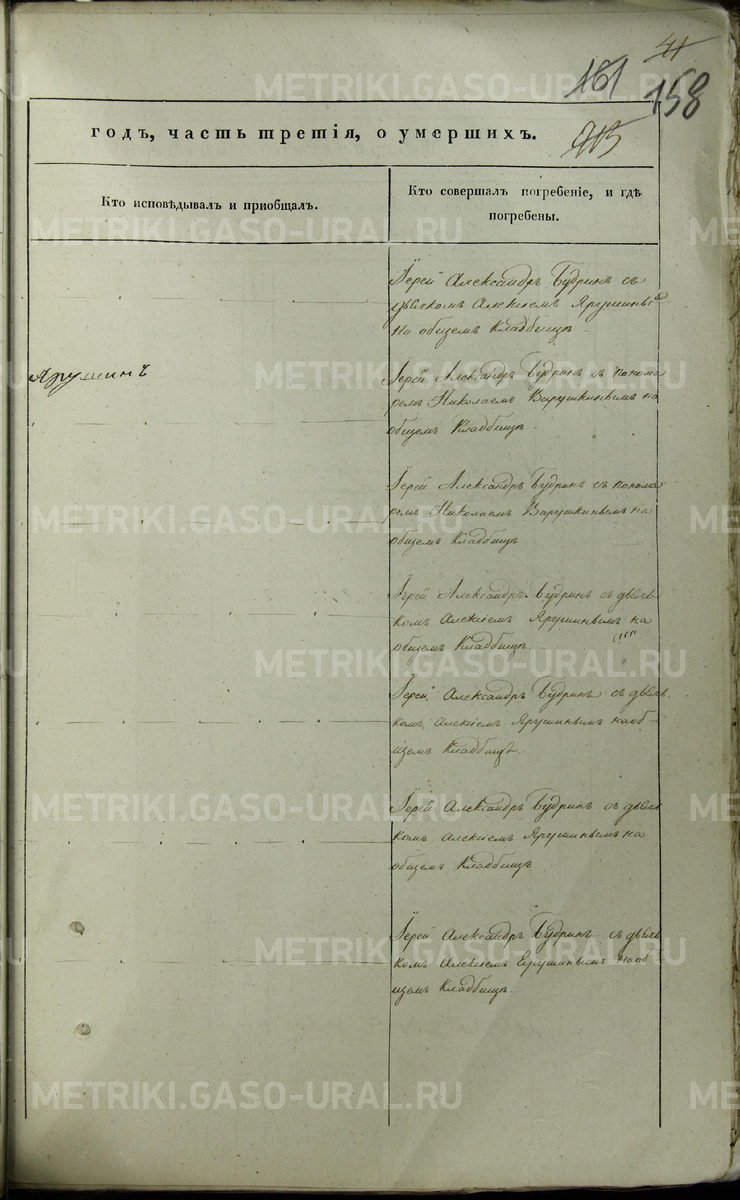 41
161
158
913
годъ, часть третія, о умершихъ.
Кто исповѣдывалъ и пріобщалъ.
Кто совершалъ погребеніе, и гдѣ
погребены.
Іерей Александръ Будринъ съ
дьячкомъ Алексіемъ Ярушинымъ
на общемъ Кладбищѣ
Ярушинъ
Іерей Александръ Будринъ съ понома
ремъ Николаемъ Варушкинымъ на
общемъ Кладбищѣ
Іерей Александръ Будринъ съ понома
ремъ Николаемъ Варушкинымъ на
общемъ Кладбищѣ
Іерей Александръ Будринъ съ дьяч
комъ Алексіемъ Ярушинымъ на
общемъ Кладбищѣ.
Іерей Александръ Будринъ съ дьяч
комъ Алексіемъ Ярушинымъ на об-
щемъ Кладбищѣ.
Іерей Александръ Будринъ съ дьяч
комъ Алексіемъ Ярушинымъ на
общемъ Кладбищѣ
Іерей Александръ Будринъ съ дьяч
комъ Алексіемъ Ерушинымъ на об
щемъ Кладбищѣ
METRIKI.GASO-URAL.RU